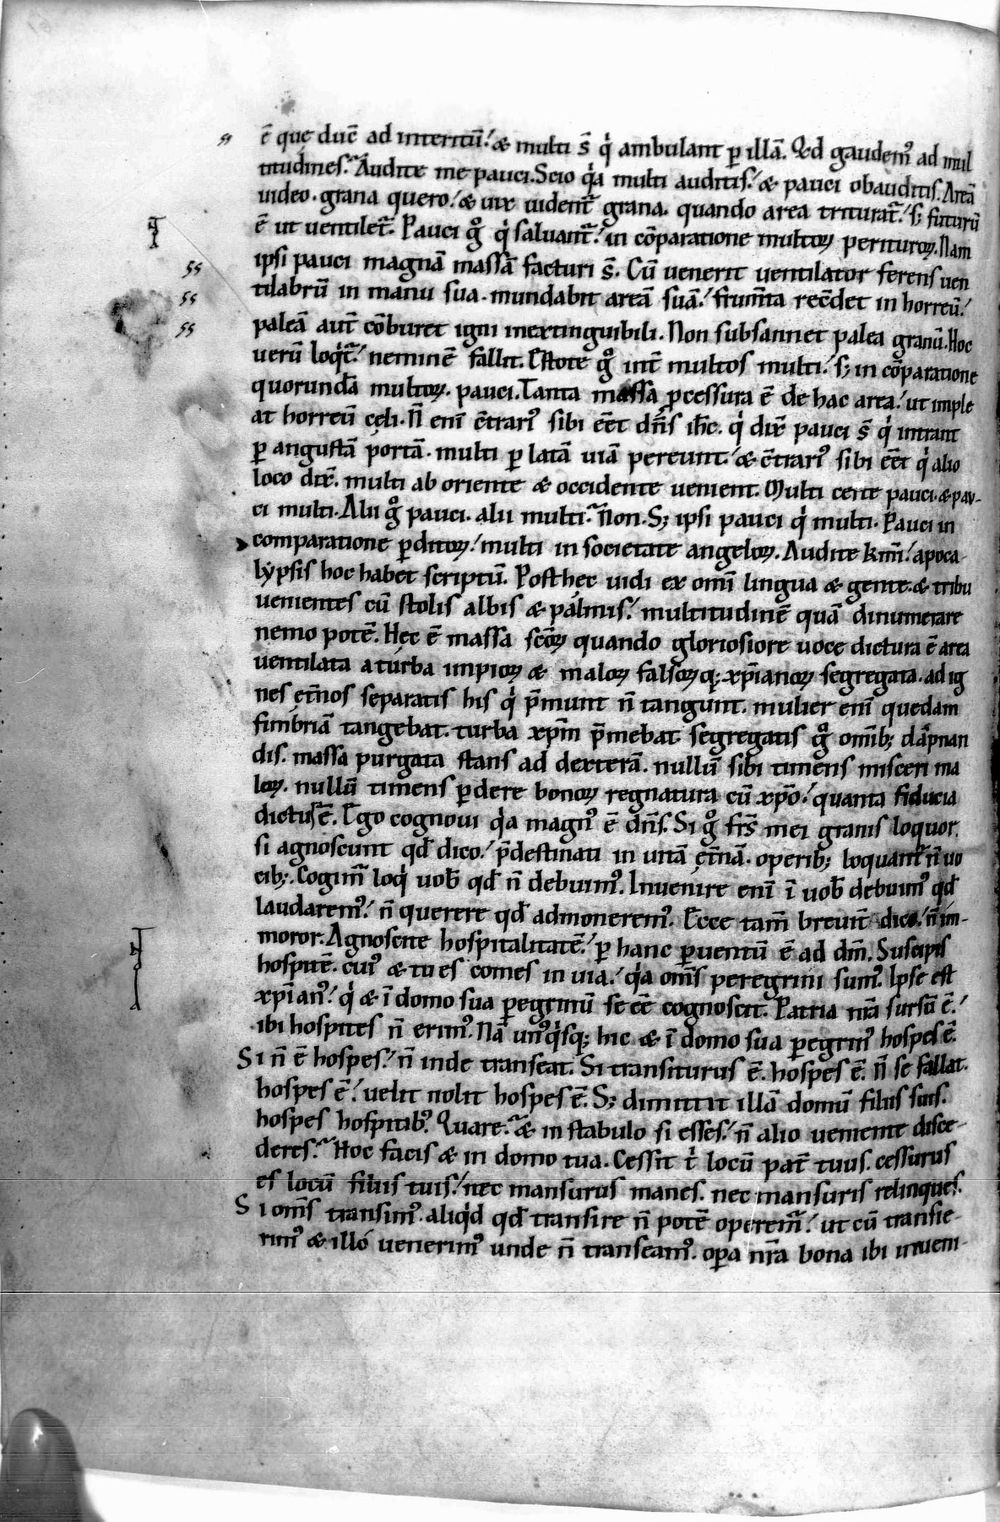 ē quę duc̄ ad interitū. & multi s̄ qi ambulant p illā. Qd gaudem⁹ ad mul
titudines. Audite me pauci. Scio qa multi auditis. & pauci obauditis. Areā
uideo. grana quero. & uix uident̄ grana. quando area triturat̄. s; futurū
ē ut uentilet̄. Pauci g̊ qi saluant̄. in cōparatione multoꝝ perituroꝝ. Nam
ipsi pauci magnā massā facturi s̄. Cū uenerit uentilator ferens uen
tilabrū in manu sua. mundabit areā suā. frum̄ta recōdet in horreū.
paleā aut̄ cōburet igni inextinguibili. Non subsannet palea granū. Hoc
uerū loqit̄. neminē fallit. Estote g̊ int̄ multos multi. s; in cōparatione
quorundā multoꝝ. pauci. Tanta massa pcessura ē de hac area. ut imple
at horreū cęli. N̄ enī c̄trari⁹ sibi eēt dn̄s ih̄c. qi dix̄ pauci s̄ qi intrant
p angustā portā. multi p latā uiā pereunt. & c̄trari⁹ sibi eēt qi alio
loco dix̄. multi ab oriente & occidente uenient. Multi certe pauci. & pau-
ci multi. Alii g̊ pauci. alii multi. Non. S; ipsi pauci qi multi. Pauci in
comparatione pditoꝝ. multi in societate angeloꝝ. Audite km̄i. apoca-
lypsis hoc habet scriptū. Post hęc uidi ex omī lingua & gente. & tribu
uenientes cū stolis albis & palmis. multitudinē quā dinumerare
nemo potē. Hęc ē massa sc̄oꝝ quando gloriosiore uoce dictura ē area
uentilata a turba impioꝝ & maloꝝ falsoꝝq; xp̄ianoꝝ segregata. ad ig
nes ęt̄nos separatis his qi p̄munt n̄ tangunt. mulier enī quedam
fimbriā tangebat. turba xp̄m p̄mebat. segregatis g̊ omīb; dāpnan
dis. massa purgata stans ad dexterā. nullū sibi timens misceri ma
loꝝ. nullū timens pdere bonoꝝ regnatura cū xp̄o. quanta fiducia
dictur̄ē. Ego cognoui qa magn⁹ ē dn̄s. Si g̊ frs̄ mei granis loquor.
si agnoscunt qd̄ dico. p̄destinati in uitā ęt̄nā. operib; loquant̄ n̄ uo
cib;. Cogim̄ loqi uob̄ qd̄ n̄ debuim⁹. Inuenire enī ī uob̄ debuim⁹ qd̄
laudarem⁹. n̄ querere qd̄ admonerem⁹. Ecce tam̄ breuit̄ dico. n̄ im-
moror. Agnoscite hospitalitatē. p hanc puentū ē ad dm̄. Suscipis
hospitē. cui⁹ & tu es comes in uia. qa om̄s peregrini sum⁹. Ipse est
xp̄ian⁹. qi & ī domo sua pegrinū se eē cognoscit. Patria nr̄a sursū ē.
ibi hospites n̄ erim⁹. Nā un⁹qisq; hic & ī domo sua pegrin⁹ hospes ē.
Si n̄ ē hospes. n̄ inde transeat. Si transiturus ē. hospes ē. N̄ se fallat.
hospes ē. uelit nolit hospes ē. S; dimittit illā domū filiis suis.
hospes hospitib⁹. Quare. & in stabulo si esses. n̄ alio ueniente disce-
deres. Hoc facis & in domo tua. Cessit t̄ locū pat̄ tuus. cessurus
es locū filiis tuis. nec mansurus manes. nec mansuris relinques.
Si om̄s transim⁹. aliqid qd̄ transire n̄ potē operem̄. ut cū transie-
rim⁹ & illo uenerim⁹ unde n̄ transeam⁹. opa nr̄a bona ibi inueni-